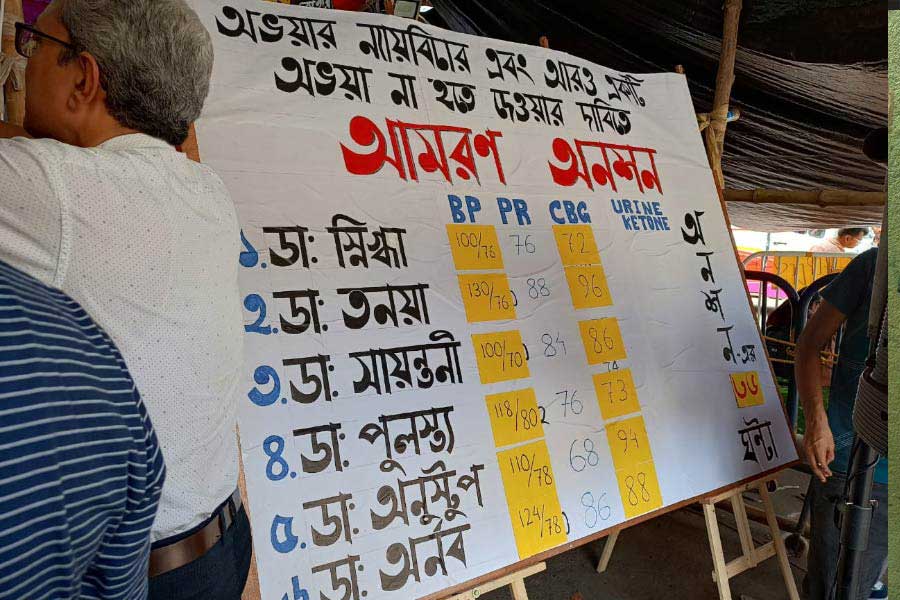 অভয়ার ন্যায়বিচার এবং আরও একটি
অভয়া না হতে দেওয়ার দাবিতে
আমরণ অনশন
BP PR CBG URINE KETONE
১. ডা: স্নিগ্ধা 100/76 76 72
২. ডা: তনয়া 130/76 88 96
৩. ডা: সায়ন্তনী 100/70 84 86
৪. ডা: পুলস্ত্য 118/80 76 74 73
৫. ডা: অনুষ্টুপ 110/78 68 94
৬ ডা: অর্নব 124/78 86 88
অনশন-এর
৩৬
ঘন্টা